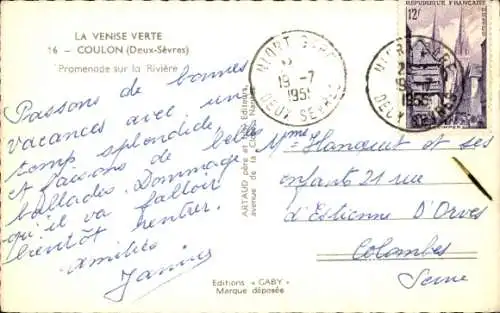 LA VENISE VERTE
16 - COULON (Deux-Sèvres)
Promenade sur la Rivière
Passons de bonnes
vacances avec un
temp splendide
et faisons de belles
ballades. Dommage
qu'il va falloir
bientôt rentrer.
Amitiés
ARTAUD père et Editeurs,
avenue de la Nantes
Editions "GABY"
Marque déposée
NIORT GARE
19-7
1955
DEUX SEVRES
NIORT GARE
19 -7
1955
DEUX SEVRES
REPUBLIQUE FRANÇAISE
12F
QUIMPER
Mme Hanquet et ses
enfants 21 rue
d'Estienne D'Orves
Colombes
Seine